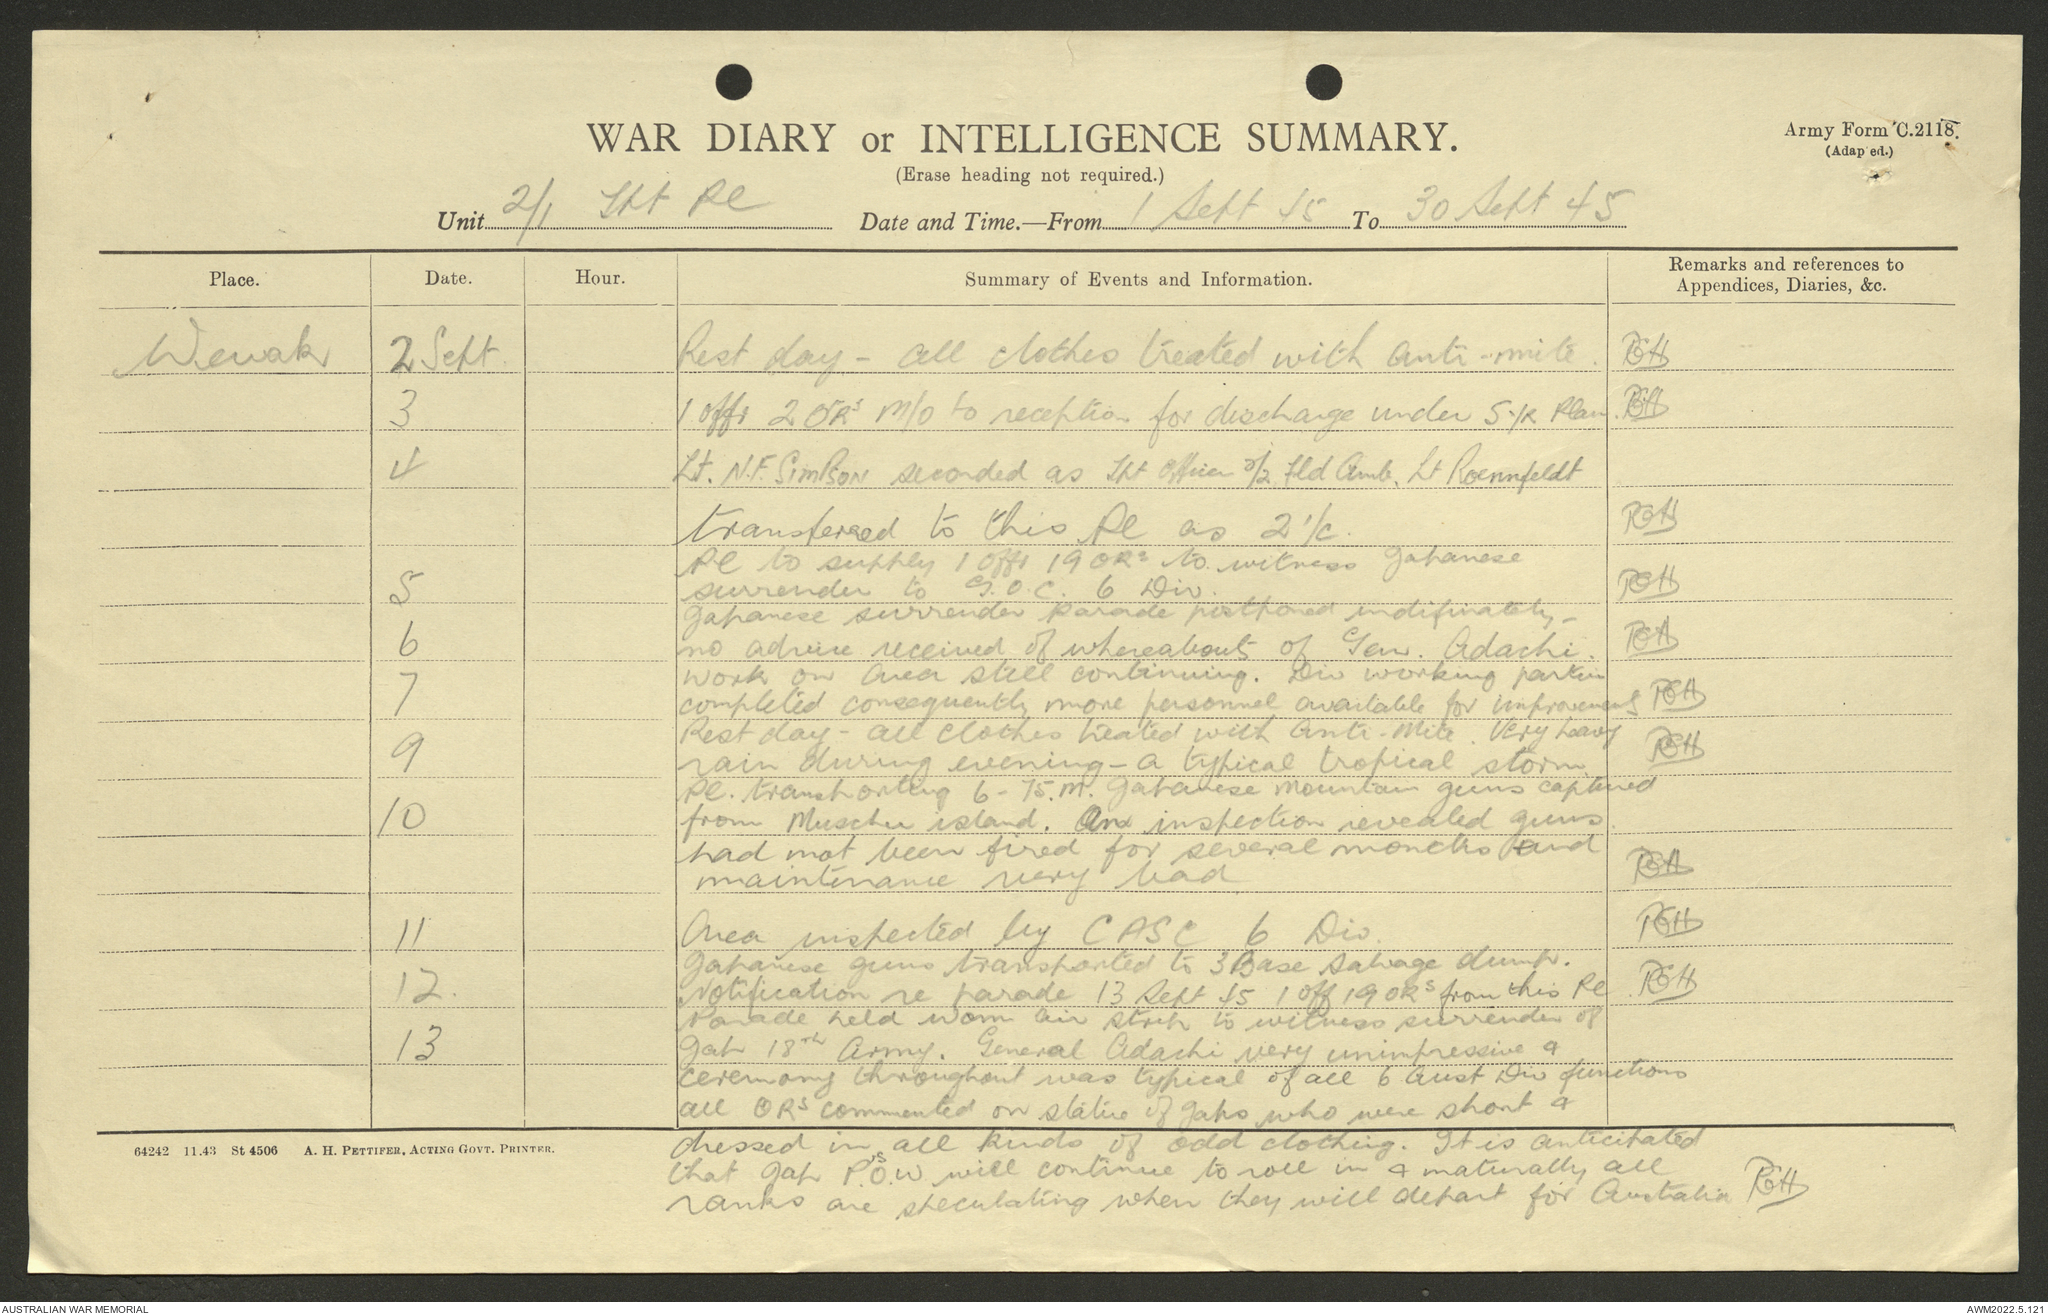 WAR DIARY or INTELLIGENCE SUMMARY.
(Erase heading not required.)
Army Form C.2118.
(Adap'ed.)
Unit 2/1 Tpt Pl Date and Time.—From 1 Sept 45 To 30 Sept 45
Place. Date. Hour. Summary of Events and Information. Remarks and references to Appendices, Diaries, &c.
Wewak 2 Sept. Rest day - all clothes treated with anti-mite. RGH
3 1 offr 2 ORs M/O to reception for discharge under 5/2 Plan. RGH
4 Lt. N.F. Simpson seconded as Tpt Officer 2/2 Fld Amb. Lt Roennfeldt
transferred to this Pl as 2 i/c. RGH
Pl to supply 1 offr 19 ORs to witness Japanese
5 surrender to G.O.C. 6 Div. RGH
Japanese surrender parade postponed indifinately -
6 no advice received of whereabouts of Gen. Adachi. RGH
Work on area still continuing. Div working parties
7 completed consequently more personnel available for improvements RGH
Rest day - all clothes treated with Anti-Mite. Very heavy
9 rain during evening - a typical tropical storm. RGH
Pl. transporting 6 - 75.M. Japanese mountain guns captured
10 from Muschu island. An inspection revealed guns
had not been fired for several months and
maintenance very bad RGH
11 Area inspected by CASC 6 Div. RGH
Japanese guns transported to 3 Base Salvage dump.
12. Notification re parade 13 Sept 45 1 off 19 ORs from this Pl. RGH
Parade held Wom air strip to witness surrender of
13 Jap 18th Army. General Adachi very unimpressive &
ceremony throughout was typical of all 6 Aust Div functions
all ORs commented on statue of Japs who were short &
dressed in all kinds of odd clothing. It is anticipated
that Jap P.O.W's will continue to roll in & naturally all
ranks are speculating when they will depart for Australia RGH
64242 11.43 St 4506 A. H. PETTIFER, ACTING GOVT. PRINTER.
AUSTRALIAN WAR MEMORIAL
AWM2022.5.121